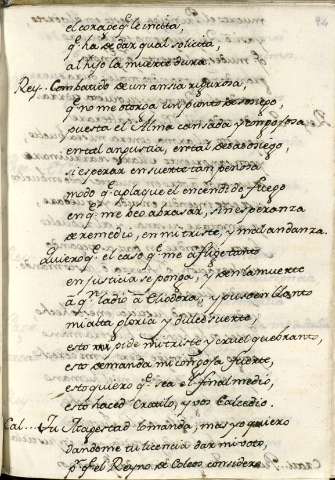 el coraje q̃ le incita,
q̃ ha de dar qual solicita,
al hijo la muerte dura.
Rey. Combatido de un ansia rigurosa,
q̃ no me otorga un punto de sosiego,
puesta el Alma cansada y
en tal angustia, en tal desasosiego,
si esperar en suerte tan penosa
modo q̃ aplaque el encendido fuego
en q̃ me veo abrasar, sin esperanza
de remedio, en mi triste, y mal andanza.
Quiero q̃ el caso q̃ me aflige tanto
en justicia se ponga, y den la muerte
à qn la dio à Eliodora, y puso en llanto
mi alta gloria y dulce suerte,
esto pide mi triste y cruel quebranto,
esto demanda mi congoja fuerte,
esto quiero q̃ sea el final medio,
esto haced Cratilo, y vos Calcedio.
Cal... Tu Magestad lo manda, mas yo quiero
dandome tu licencia dar mi voto,
p.q̃ el Reyno de Colcos considero